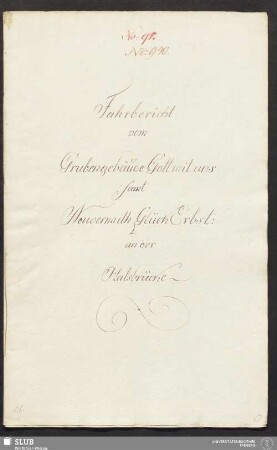 No: 91.
No: 990.
Fahrbericht
vom
Grubengebäude Gott mit uns
samt
Neuvermuth Glück Erbst:
an der
Halsbrücke
SLUB
Wir führen Wissen.
UNIVERSITÄTSBIBLIOTHEK
FREIBERG